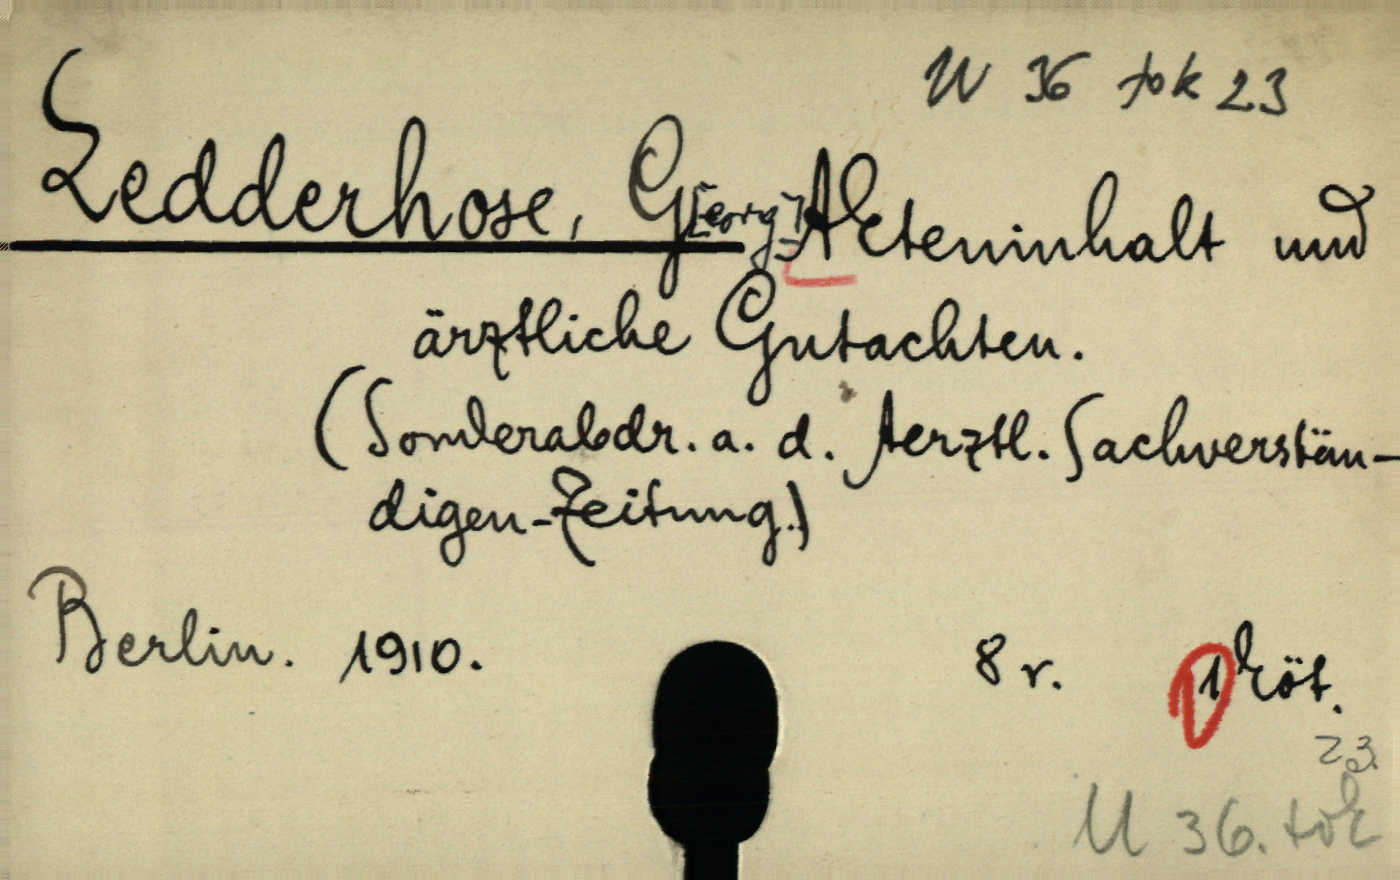 U 36 tok 23
Ledderhose, G[eorg] Akteninhalt und
ärztliche Gutachten.
(Sonderabdr. a. d. Aerztl. Sachverstän-
digen-Zeitung.)
Berlin. 1910. 8 r. 1 köt.
23.
U 36. tok